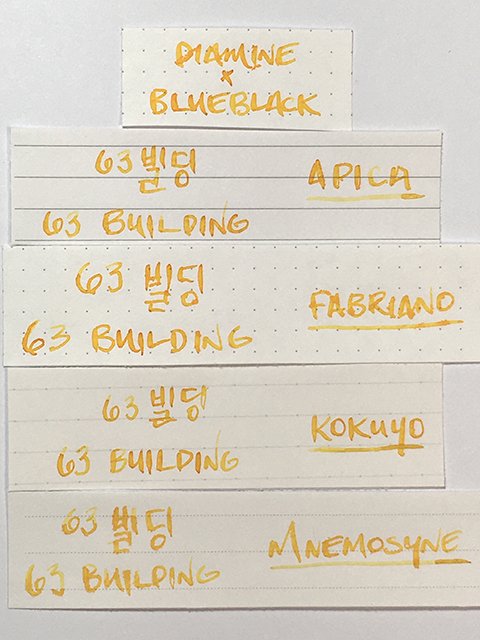 DIAMINE
x
BLUEBLACK
63빌딩
APICA
63 BUILDING
63 빌딩
FABRIANO
63 BUILDING
63 빌딩
KOKUYO
63 BUILDING
63 빌딩
MNEMOSYNE
63 BUILDING